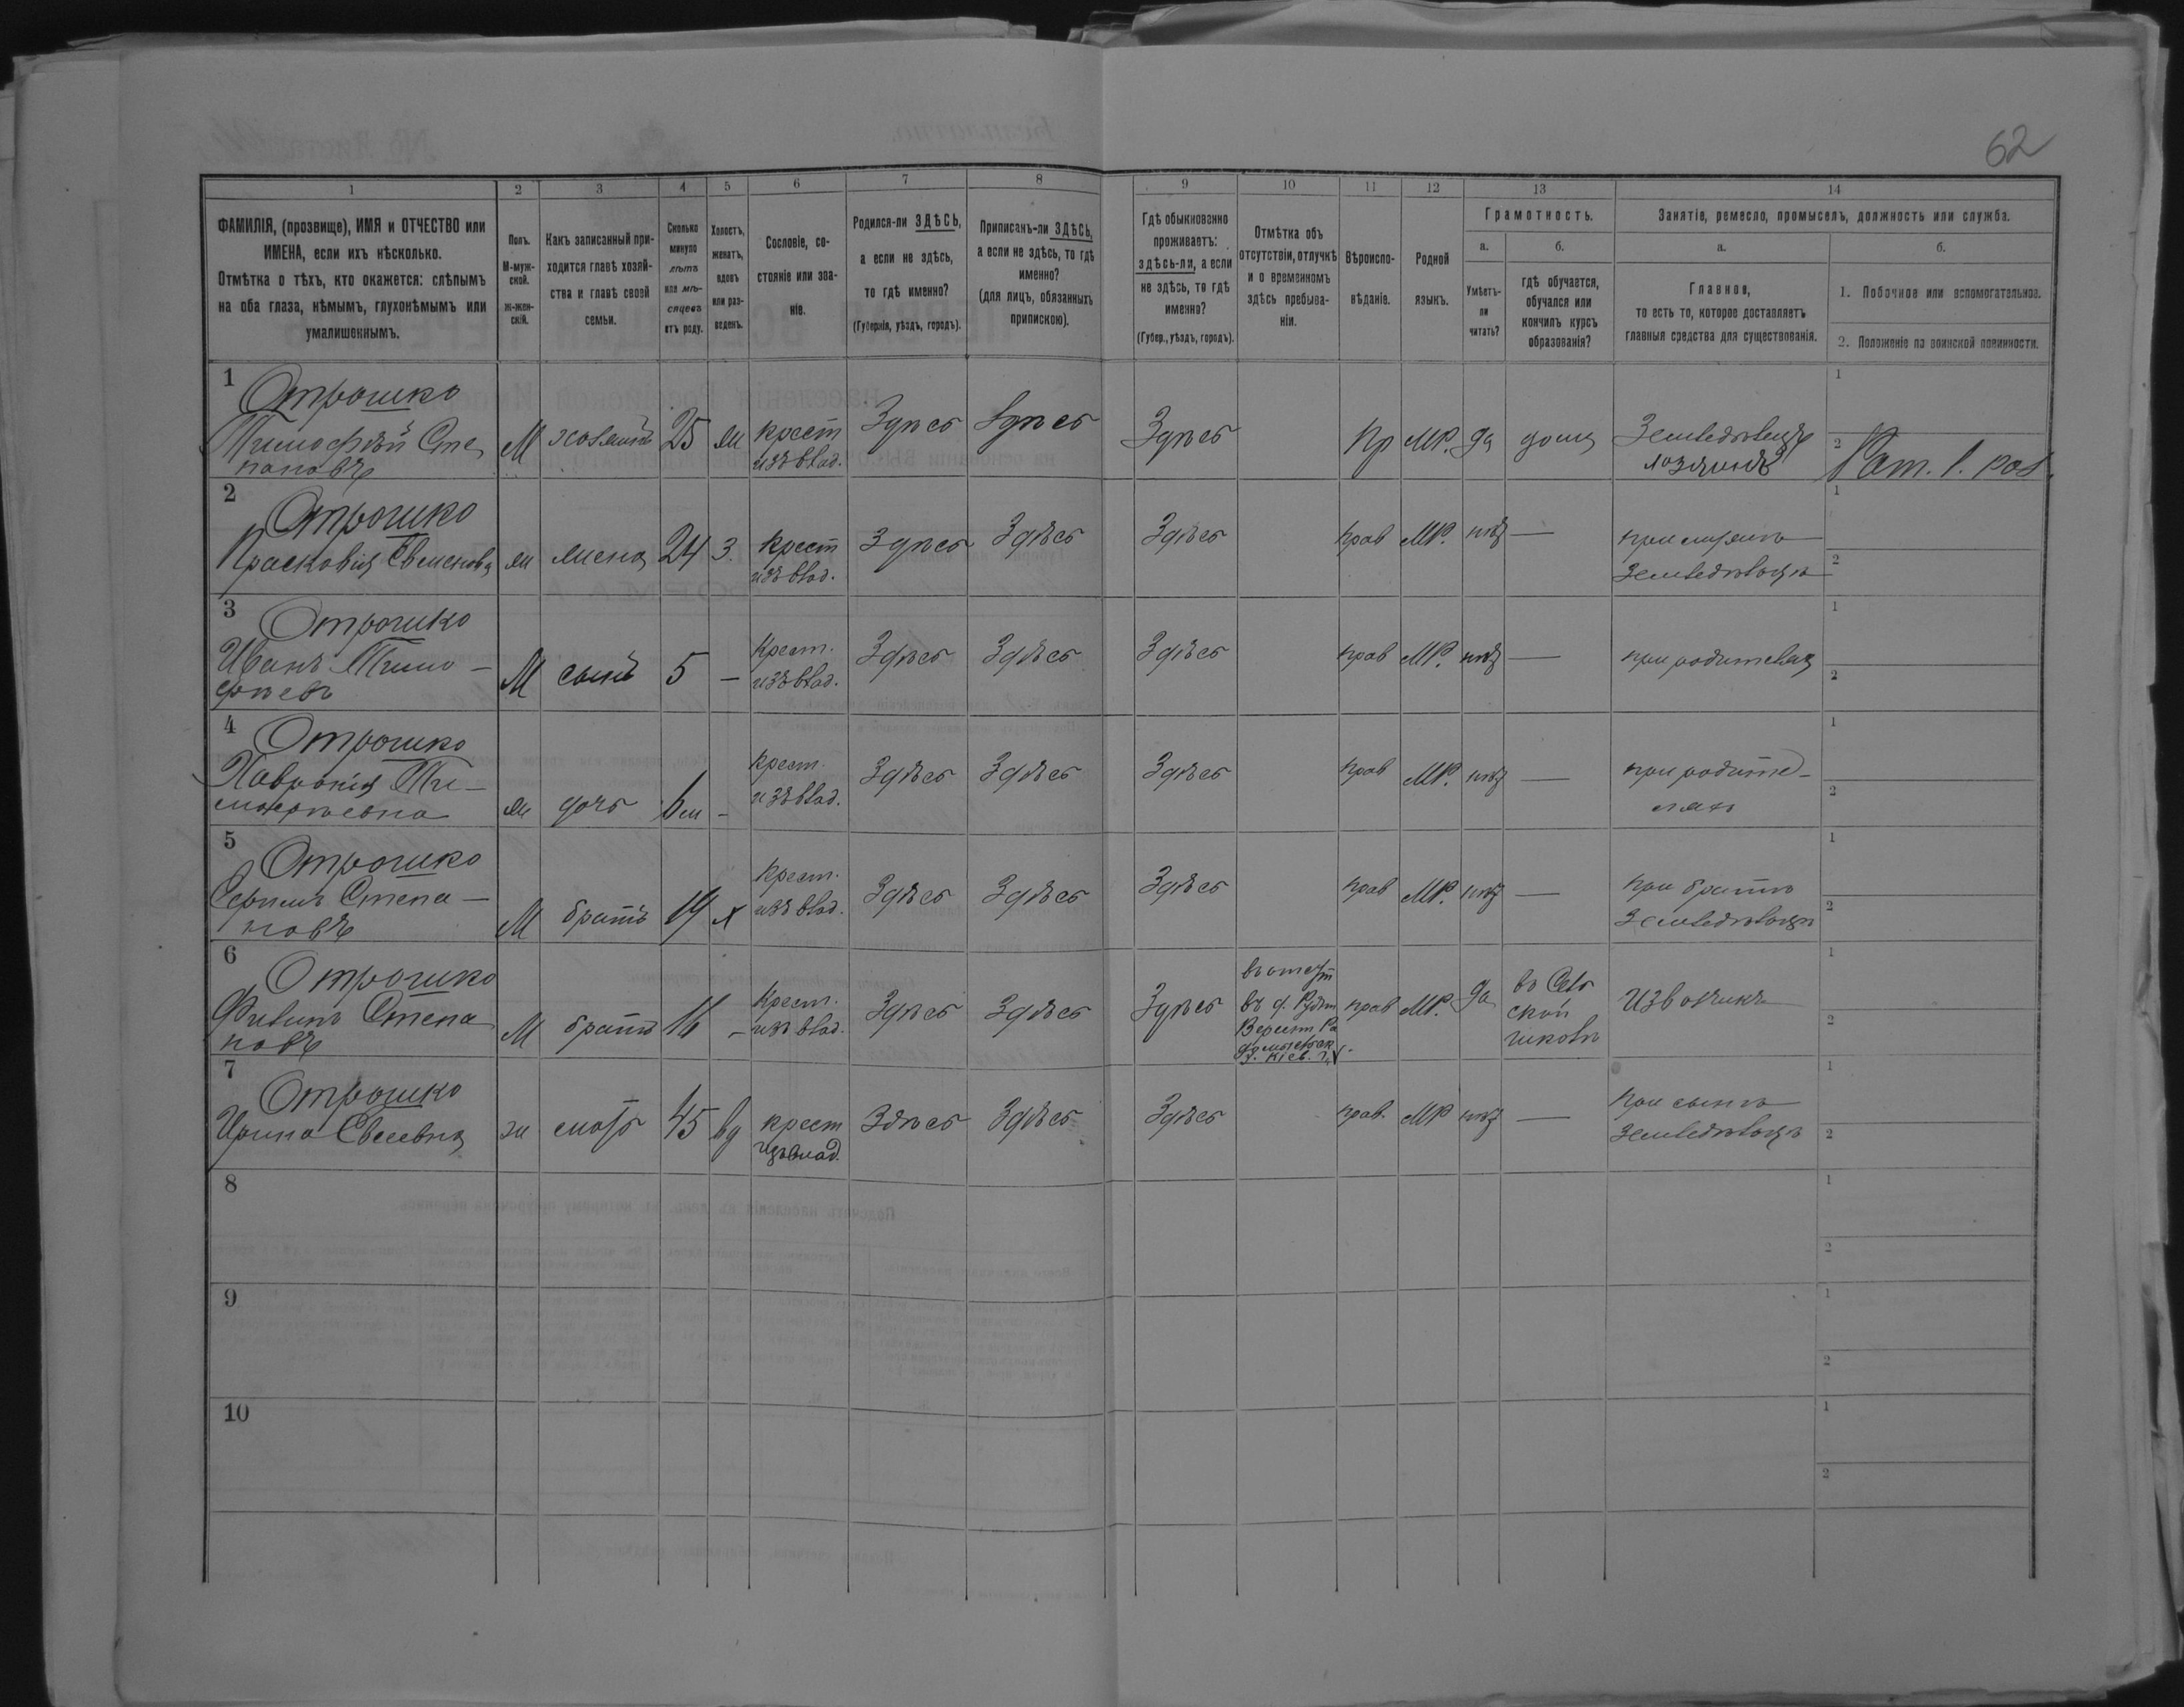 62
1 2 3 4 5 6 7 8 9 10 11 12 13 14
ФАМИЛІЯ, (прозвище), ИМЯ и ОТЧЕСТВО или
ИМЕНА, если ихъ нѣсколько.
Отмѣтка о тѣхъ, кто окажется: слѣпымъ
на оба глаза, нѣмымъ, глухонѣмымъ или
умалишеннымъ.
Полъ.
М-муж-
ской.
ж-жен-
скій.
Какъ записанный при-
ходится главѣ хозяй-
ства и главѣ своей
семьи.
Сколько
минуло
лѣтъ
или мѣ-
сяцевъ
отъ роду.
Холостъ,
женатъ,
вдовъ
или раз-
веденъ.
Сословіе, со-
стояніе или зва-
ніе.
Родился-ли ЗДѢСЬ,
а если не здѣсь,
то гдѣ именно?
(Губернія, уѣздъ, городъ).
Приписанъ-ли ЗДѢСЬ,
а если не здѣсь, то гдѣ
именно?
(для лицъ, обязанныхъ
припискою).
Гдѣ обыкновенно
проживаетъ:
здѣсь-ли, а если
не здѣсь, то гдѣ
именно?
(Губер., уѣздъ, городъ).
Отмѣтка объ
отсутствіи, отлучкѣ
и о временномъ
здѣсь пребыва-
ніи.
Вѣроиспо-
вѣданіе.
Родной
языкъ.
Грамотность.
а.
Умѣетъ-
ли
читать?
б.
гдѣ обучается,
обучался или
кончилъ курсъ
образованія?
Занятіе, ремесло, промыселъ, должность или служба.
а.
Главное,
то есть то, которое доставляетъ
главныя средства для существованія.
б.
1. Побочное или вспомогательное.
2. Положеніе по воинской повинности.
1
Отрошко
Тимофѣй Сте
пановъ
М хозяинъ 25 ж крест
изъ влад.
Здѣсь Здѣсь Здѣсь Пр МР. да дома Земледѣлецъ
хозяинъ
1
2 Рат. 1. раз.
2
Отрошко
Прасковія Семенова
ж жена 24 З крест
изъ влад.
Здѣсь Здѣсь Здѣсь прав МР. нѣт —
земледѣльцѣ
1
2
3
Отрошко
Иванъ Тимо-
фѣевъ
М сынъ 5 — крест.
изъ влад.
Здѣсь Здѣсь Здѣсь прав МР. нѣт — при родителях
1
2
4
Отрошко
Хавронія Ти-
мофѣевна
ж дочь 6 м - крест.
изъ влад.
Здѣсь Здѣсь Здѣсь прав МР. нѣт — при родите-
ляхъ
1
2
5
Отрошко
Степа-
новъ
М братъ 19 х крест.
изъ влад.
Здѣсь Здѣсь Здѣсь прав МР. нѣт — при братѣ
земледѣльцѣ
1
2
6
Отрошко
Филипъ Степа
новъ
М братъ 16 - крест.
изъ влад.
Здѣсь Здѣсь Здѣсь
въ отсут
въ д.
Киев. г.
прав МР. да въ Сель
ской
школѣ
Извозчикъ
1
2
7
Отрошко
Ирина Евсеевна
ж мать 45 вд крест
изъ влад.
Здѣсь Здѣсь Здѣсь прав. МР нѣт — при сынѣ
земледѣльцѣ
1
2
8
1
2
9
1
2
10
1
2